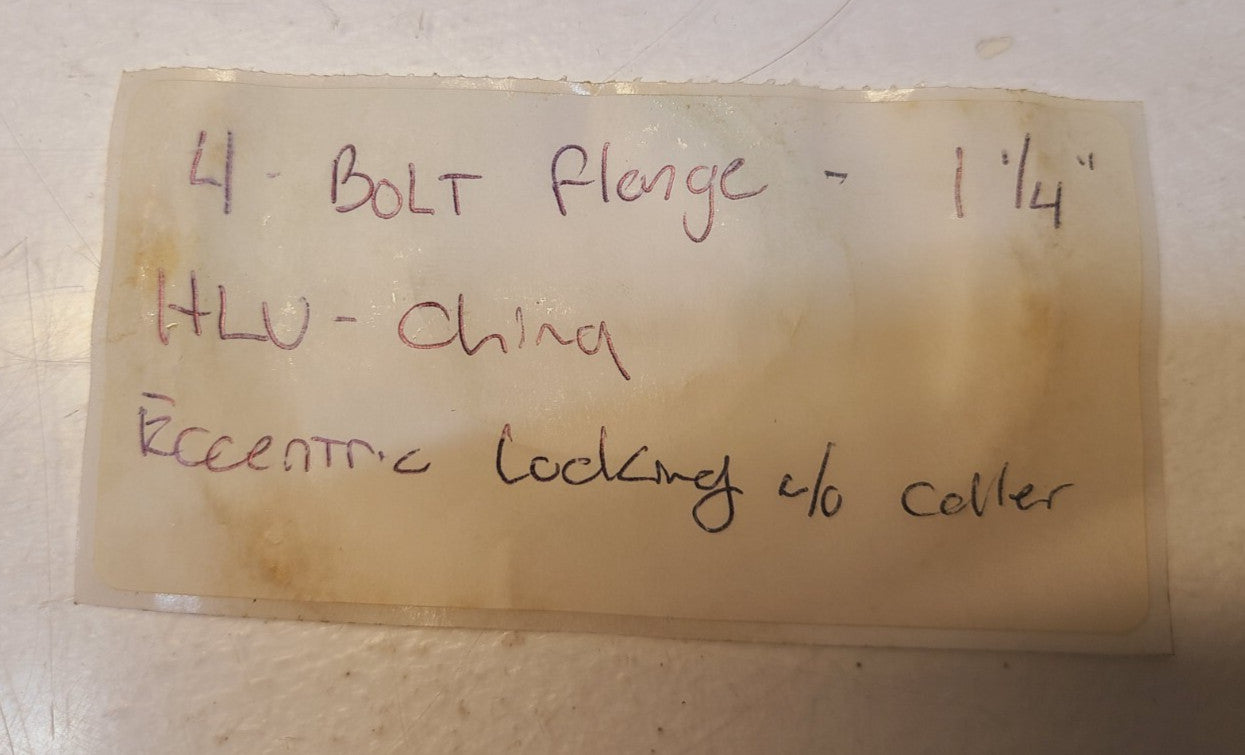 4 - BOLT flange - 1 1/4"
HLU - China
Eccentric locking w/o coller